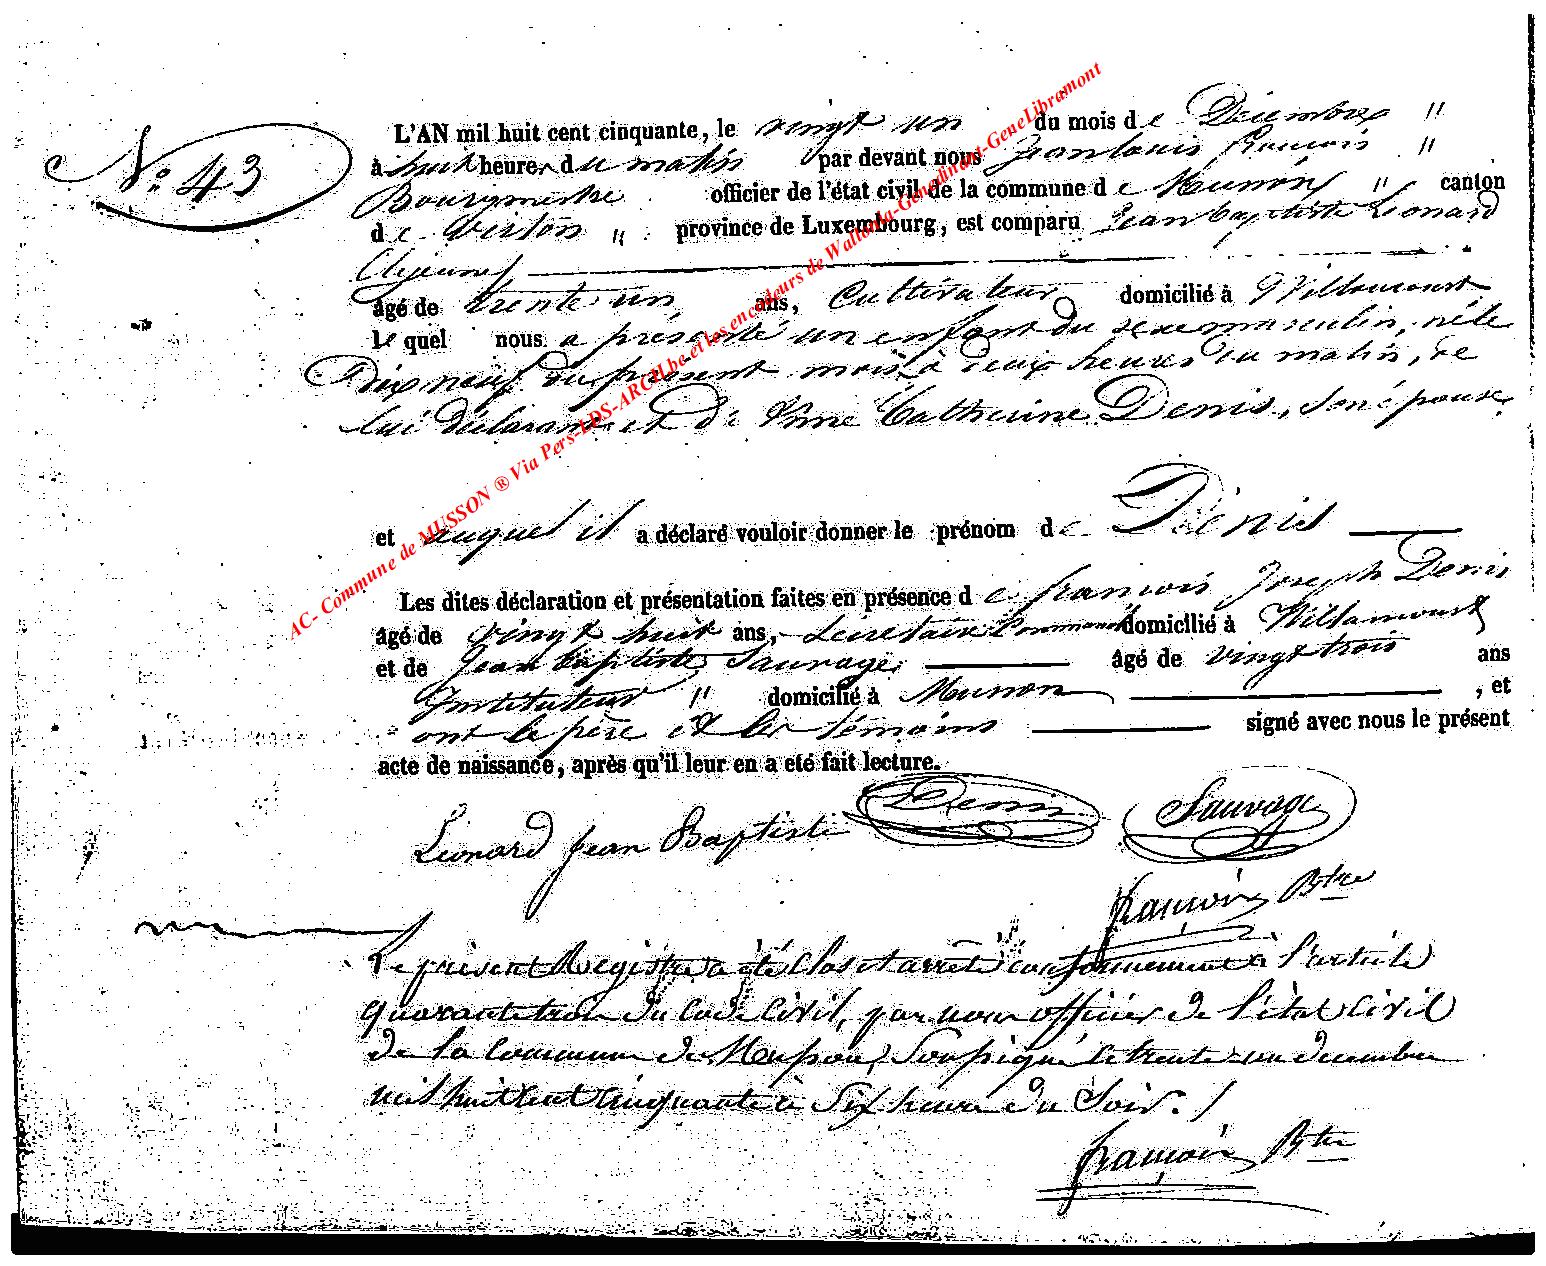 N.o 43
L'AN mil huit cent cinquante, le vingt un du mois de Décembre "
à huit heures du matin par devant nous Jean Louis François "
Bourgmestre officier de l'état civil de la commune de Musson " canton
de Virton " province de Luxembourg, est comparu Jean Baptiste Léonard
âgé de trente un ans, Cultivateur domicilié à Willancourt
le quel nous a présenté un enfant du sexe masculin, né le
Dix neuf du présent mois à deux heures du matin, de
lui déclarant et de Anne Catherine Denis, son épouse,
et auquel il a déclaré vouloir donner le prénom de Dénis
Les dites déclaration et présentation faites en présence de françois Joseph Denis
âgé de vingt huit ans, Secretaire Communal domicilié à Willancourt
et de Jean baptiste Sauvage âgé de vingt trois ans
Instituteur " domicilié à Musson , et
ont le père et les témoins signé avec nous le présent
acte de naissance, après qu'il leur en a eté fait lecture.
Léonard Jean Baptiste Denis Sauvage
françois Btre
Le présent Registre a été clos et arreté conformement à l'article
quarante trois du Code Civil, par nous officier de l'état Civil
de la Commune de Musson, Soussigné le trente un decembre
mil huit cent cinquante à Six heures du Soir. /
françois Btre
AC- Commune de MUSSON ® Via Pers-LDS-ARCH.be et les encodeurs de Wallonia-Genedinant-GeneLibramont